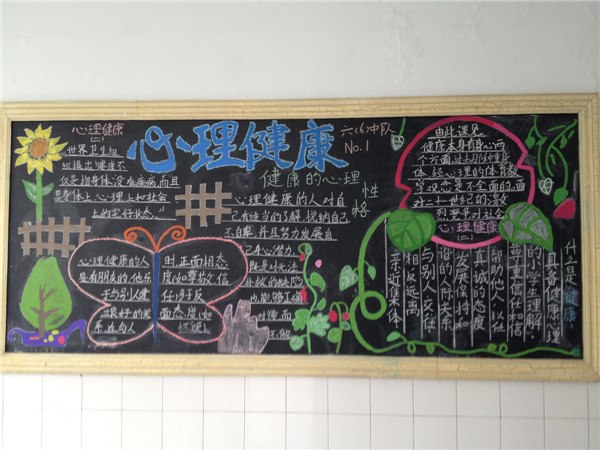 心理健康
六(6)中队
No.1
心理健康
(二)
世界卫生组
织提出"健康不
仅是指身体没有疾病,而且
是身体上、心理上和社会
上的完好状态。"
健康的心理
性格
心理健康的人对自
己有适当的了解,悦纳自己,
并且努力发展自
己身心潜力,
也能够正确
对待,而
不做
心理健康的人
是有朋友的,他乐
于与别人建
立良好的关
系,在与人
时,正面相态
度(如尊敬、信
任)多于反
面态度(如
怀疑)
由此课见,
健康本身有身心两
个方面,
不是全面的。面
对二十一世纪的激
烈竞争,对社会
心理健康
(二)
什么是"健康"
具备健康心理
的小学生理解、
尊重、信任和
帮助他人,以
真诚的态度
发展保持和
谐的人际关系
与别人交往
相反远离
亲近集体